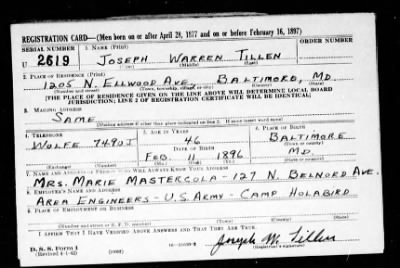 REGISTRATION CARD—(Men born on or after April 28, 1877 and on or before February 16, 1897)
SERIAL NUMBER 1. NAME (Print) ORDER NUMBER
U 2619 JOSEPH WARREN TILLEN
(First) (Middle) (Last)
2. PLACE OF RESIDENCE (Print)
1205 N. ELLWOOD AVE, BALTIMORE, MD.
(Number and street) (Town, township, village, or city) (County) (State)
[THE PLACE OF RESIDENCE GIVEN ON THE LINE ABOVE WILL DETERMINE LOCAL BOARD
JURISDICTION; LINE 2 OF REGISTRATION CERTIFICATE WILL BE IDENTICAL]
3. MAILING ADDRESS
SAME
[Mailing address if other than place indicated on line 2. If same insert word same]
4. TELEPHONE 5. AGE IN YEARS 6. PLACE OF BIRTH
WOLFE 7490J 46 BALTIMORE
DATE OF BIRTH (Town or county)
FEB. 11 1896 MD.
(Exchange) (Number) (Mo.) (Day) (Yr.) (State or country)
7. NAME AND ADDRESS OF PERSON WHO WILL ALWAYS KNOW YOUR ADDRESS
MRS. MARIE MASTERCOLA - 127 N. BELNORD AVE.
8. EMPLOYER'S NAME AND ADDRESS
AREA ENGINEERS - U.S. ARMY - CAMP HOLABIRD
9. PLACE OF EMPLOYMENT OR BUSINESS
(Number and street or R. F. D. number) (Town) (County) (State)
I AFFIRM THAT I HAVE VERIFIED ABOVE ANSWERS AND THAT THEY ARE TRUE.
D. S. S. Form 1
(Revised 4-1-42) (over) Joseph W. Tillen
(Registrant's signature)